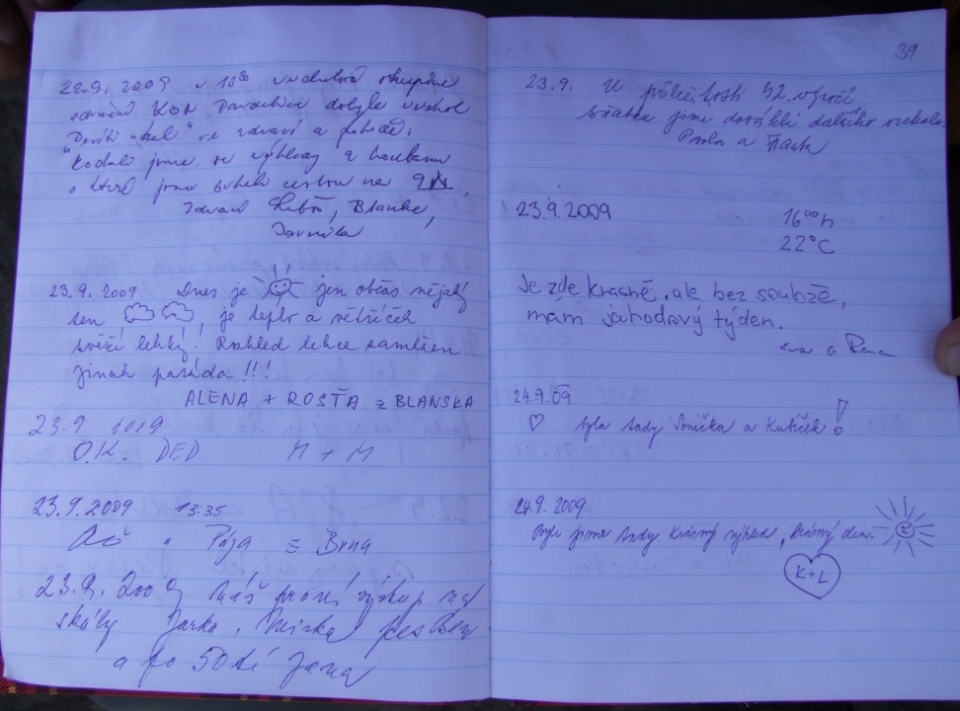 22.9. 2009 v 10³⁰
KČN Pardubice dobyla vrchol
ve zdraví a pohodě.
Kochali jsme se výhledy a houbami
o které jsme cestou na
Zdraví Luboš, Blanka,
Jarmila
23.9.2009 Dnes je jen občas nějaký
ten , je teplo a větříček
svěží lehký! Rozhled lehce zamlžen
jinak paráda!!!
ALENA + ROSŤA z BLANSKA
23.9 1019
O.K. DĚD M + M
23.9.2009 13:35
a Pája z Brna
23.9.2009 Náš první výstup na
skály Jarka, Mirka pes Ben
a po 50ti Jana
39
23.9. U příležitosti 42. výročí
sňatku jsme dosáhli dalšího vrcholu.
Pavla a Frank
23.9.2009 16⁰⁰h
22°C
Je zde krásně, ale bez soutěže,
mám pohodový týden.
Eva a
24.9.09
♡ byla tady Sonička a Kubíček!
24.9. 2009
Byli jsme tady. Krásný výhled, krásný den.
K+L